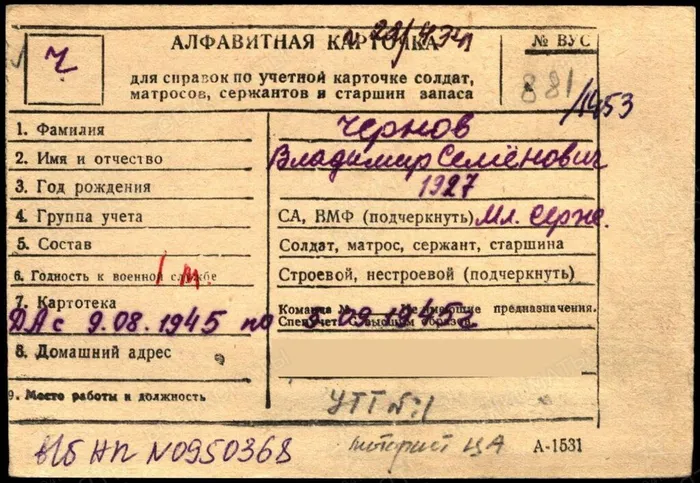 № 22/434
АЛФАВИТНАЯ КАРТОЧКА
№ ВУС
Ч
881
/1453
для справок по учетной карточке солдат,
матросов, сержантов и старшин запаса
1. Фамилия Чернов
2. Имя и отчество Владимир Семёнович
3. Год рождения 1927
4. Группа учета СА, ВМФ (подчеркнуть) Мл. серж.
5. Состав Солдат, матрос, сержант, старшина
6. Годность к военной службе Строевой, нестроевой (подчеркнуть)
7. Картотека Команда № Не имеющие предназначения.
Спецучет. С высшим образов.
ДА с 9.08.1945 по 3.09.1945г
8. Домашний адрес
9. Место работы и должность
УТТ №1
ВБ НП №0950368
моторист ЦА
А-1531